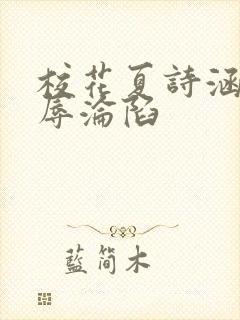 校花夏詩涵
辱淪陷
藍简木